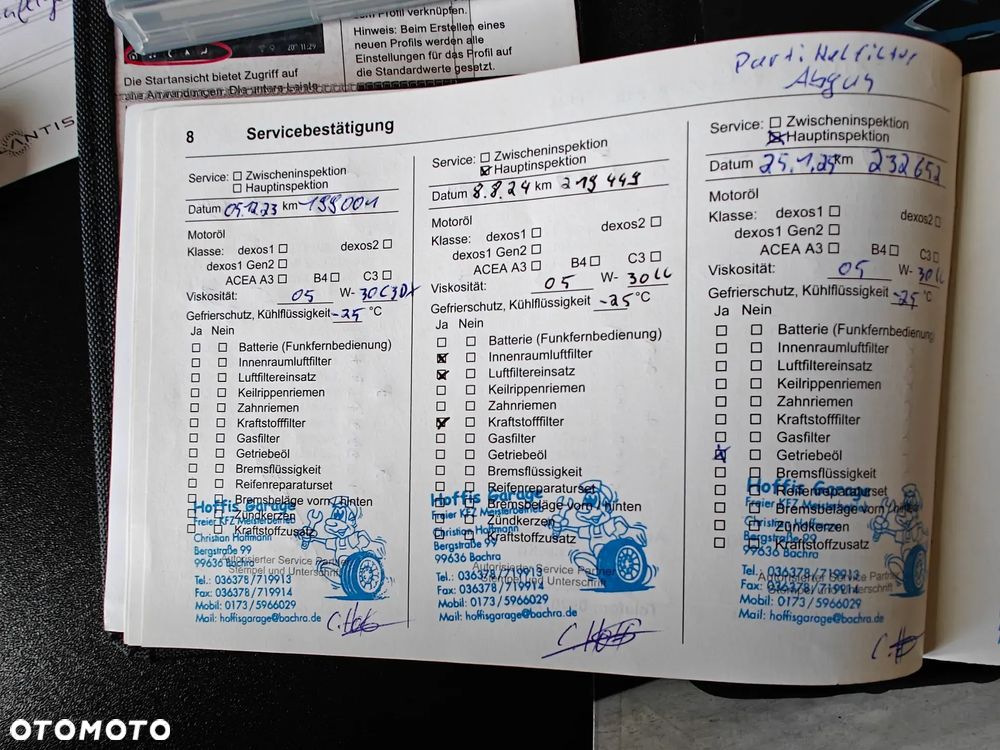 zum Profil verknüpfen.
Hinweis: Beim Erstellen eines
neuen Profils werden alle
Einstellungen für das Profil auf
die Standardwerte gesetzt.
20° 11:29
Die Startansicht bietet Zugriff auf
alle Anwendungen. Die untere Leiste
ANTIS
Abgas
8 Servicebestätigung
Service: Zwischeninspektion
Hauptinspektion
Datum 05.12.23 km 199001
Motoröl
Klasse: dexos1 dexos2
dexos1 Gen2
ACEA A3 B4 C3
Viskosität: 05 W- 30 C3
Gefrierschutz, Kühlflüssigkeit -25 °C
Ja Nein
Batterie (Funkfernbedienung)
Innenraumluftfilter
Luftfiltereinsatz
Keilrippenriemen
Zahnriemen
Kraftstofffilter
Gasfilter
Getriebeöl
Bremsflüssigkeit
Reifenreparaturset
Bremsbeläge vorn / hinten
Zündkerzen
Kraftstoffzusatz
Hoffis Garage
Freier KFZ Meisterbetrieb
Christian Hoffmann
Bergstraße 99
99636 Bachra
Autorisierter Service Partner
Stempel und Unterschrift
Tel.: 036378/719913
Fax: 036378/719914
Mobil: 0173/5966029
Mail: hoffisgarage@bachra.de
Service: Zwischeninspektion
Hauptinspektion
Datum 8.8.24 km 219449
Motoröl
Klasse: dexos1 dexos2
dexos1 Gen2
ACEA A3 B4 C3
Viskosität: 05 W- 30
Gefrierschutz, Kühlflüssigkeit -25 °C
Ja Nein
Batterie (Funkfernbedienung)
Innenraumluftfilter
Luftfiltereinsatz
Keilrippenriemen
Zahnriemen
Kraftstofffilter
Gasfilter
Getriebeöl
Bremsflüssigkeit
Reifenreparaturset
Bremsbeläge vorn / hinten
Zündkerzen
Kraftstoffzusatz
Hoffis Garage
Freier KFZ Meisterbetrieb
Christian Hoffmann
Bergstraße 99
99636 Bachra
Autorisierter Service Partner
Stempel und Unterschrift
Tel.: 036378/719913
Fax: 036378/719914
Mobil: 0173/5966029
Mail: hoffisgarage@bachra.de
Service: Zwischeninspektion
Hauptinspektion
Datum 25.1.25 km 232652
Motoröl
Klasse: dexos1 dexos2
dexos1 Gen2
ACEA A3 B4 C3
Viskosität: 05 W- 30
Gefrierschutz, Kühlflüssigkeit -25 °C
Ja Nein
Batterie (Funkfernbedienung)
Innenraumluftfilter
Luftfiltereinsatz
Keilrippenriemen
Zahnriemen
Kraftstofffilter
Gasfilter
Getriebeöl
Bremsflüssigkeit
Reifenreparaturset
Bremsbeläge vorn / hinten
Zündkerzen
Kraftstoffzusatz
Hoffis Garage
Freier KFZ Meisterbetrieb
Christian Hoffmann
Bergstraße 99
99636 Bachra
Autorisierter Service Partner
Stempel und Unterschrift
Tel.: 036378/719913
Fax: 036378/719914
Mobil: 0173/5966029
Mail: hoffisgarage@bachra.de
OTOMOTO